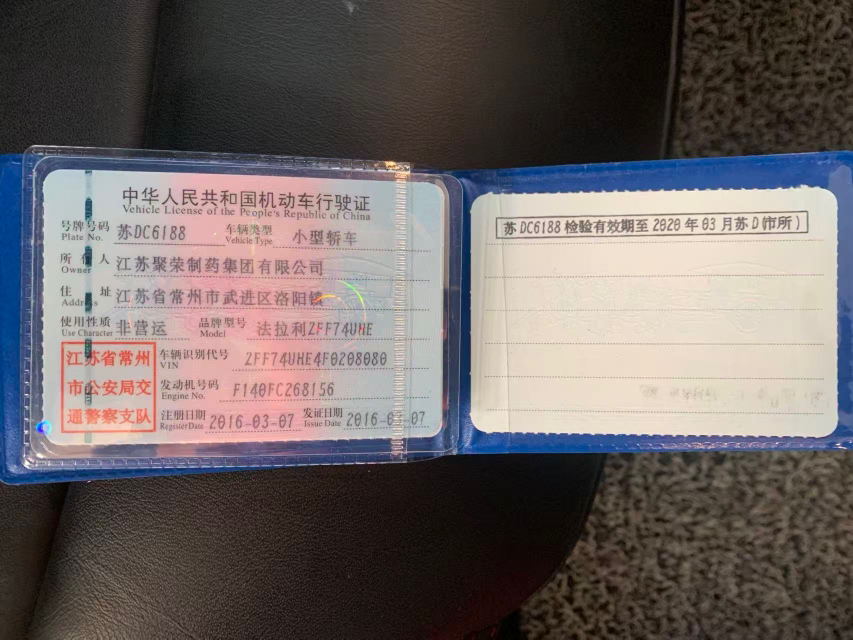 中华人民共和国机动车行驶证
Vehicle License of the People's Republic of China
号牌号码 苏DC6188 车辆类型 小型轿车
Plate No. Vehicle Type
所有人 江苏聚荣制药集团有限公司
Owner
住址 江苏省常州市武进区洛阳镇
Address
使用性质 非营运 品牌型号 法拉利ZFF74UHE
Use Character Model
江苏省常州
市公安局交
通警察支队
车辆识别代号 ZFF74UHE4F0208080
VIN
发动机号码 F140FC268156
Engine No.
注册日期 2016-03-07 发证日期 2016-03-07
Register Date Issue Date
苏DC6188检验有效期至2020年03月苏D(市所)